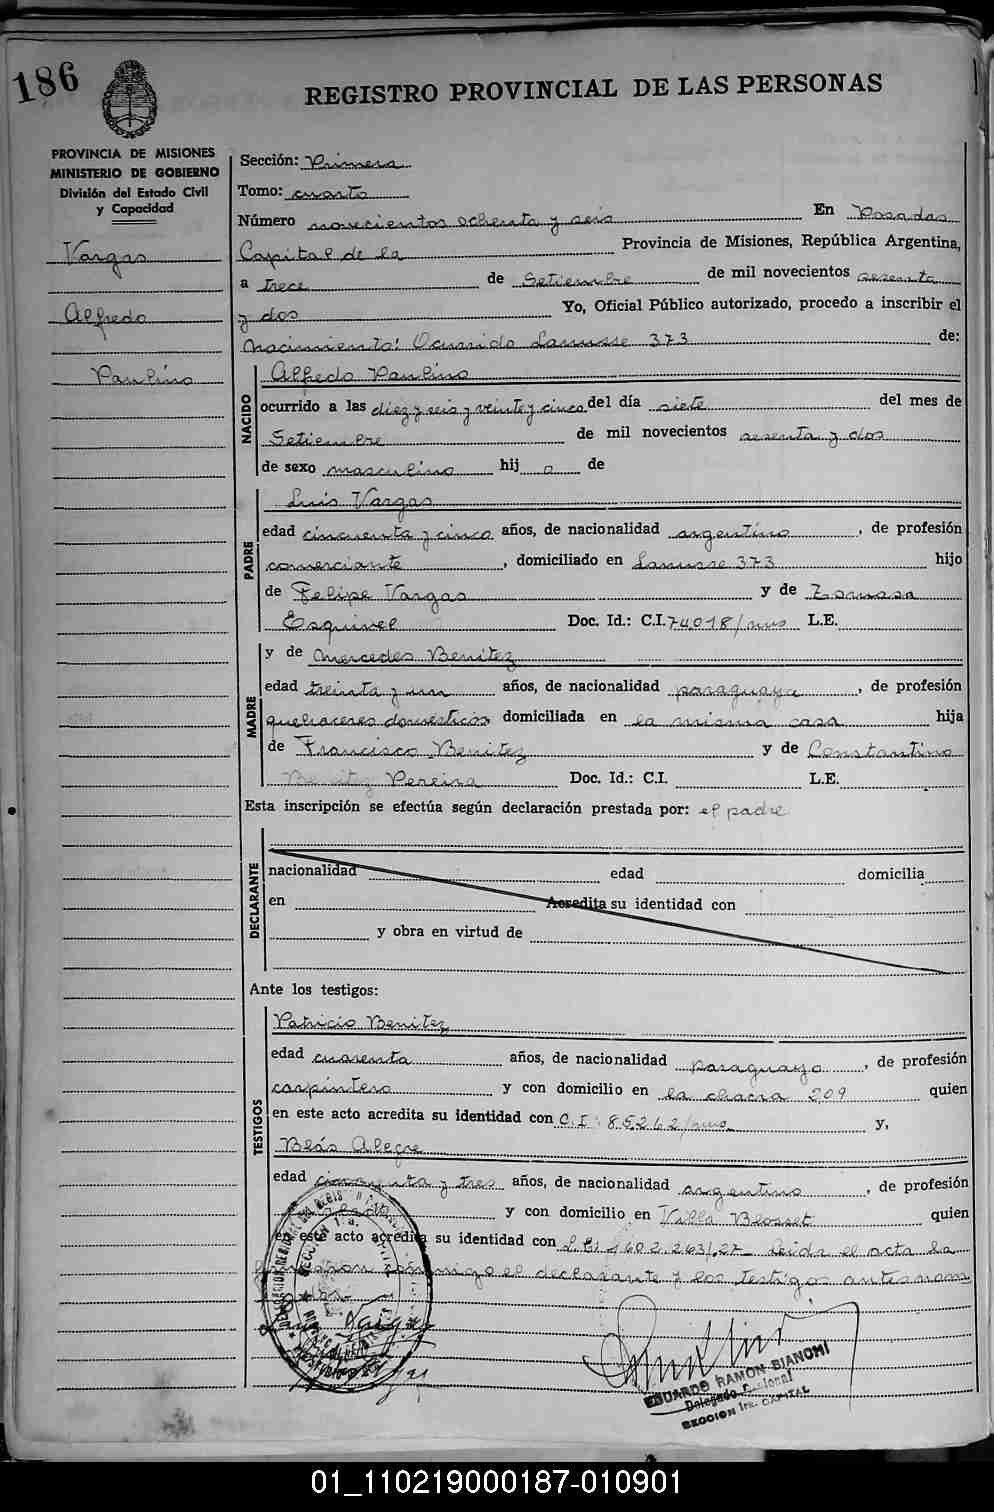 186
REGISTRO PROVINCIAL DE LAS PERSONAS
PROVINCIA DE MISIONES
MINISTERIO DE GOBIERNO
División del Estado Civil
y Capacidad
Vargas
Alfredo
Paulino
Sección: Primera
Tomo: cuarto
Número novecientos ochenta y seis En Posadas
Capital de la Provincia de Misiones, República Argentina,
a trece de Setiembre de mil novecientos sesenta
y dos Yo, Oficial Público autorizado, procedo a inscribir el
Nacimiento: Ocurrido Lanusse 373 de:
NACIDO
Alfredo Paulino
ocurrido a las diez y seis y veinte y cinco del día siete del mes de
Setiembre de mil novecientos sesenta y dos
de sexo masculino hij o de
PADRE
Luis Vargas
edad cincuenta y cinco años, de nacionalidad argentino, de profesión
comerciante, domiciliado en Lanusse 373 hijo
de Felipe Vargas y de Tomasa
Esquivel Doc. Id.: C.I. 74018/mns L.E.
MADRE
y de Mercedes Benitez
edad treinta y un años, de nacionalidad paraguaya, de profesión
quehaceres domesticos domiciliada en la misma casa hija
de Francisco Benitez y de Constantina
Benitez Pereira Doc. Id.: C.I. L.E.
Esta inscripción se efectúa según declaración prestada por: el padre
DECLARANTE
nacionalidad edad domicilia
en Acredita su identidad con
y obra en virtud de
Ante los testigos:
TESTIGOS
Patricio Benitez
edad cuarenta años, de nacionalidad paraguayo, de profesión
carpintero y con domicilio en la chacra 209 quien
en este acto acredita su identidad con C.I: 85262/mns y,
Blás Alegre
edad cincuenta y tres años, de nacionalidad argentino, de profesión
y con domicilio en Villa Blosset quien
en este acto acredita su identidad con Leida el acta la
conmigo el declarante y los testigos antes nom
Vargas
EDUARDO RAMON BIANCHI
Delegado Regional
SECCION 1ra. CAPITAL
01_110219000187-010901